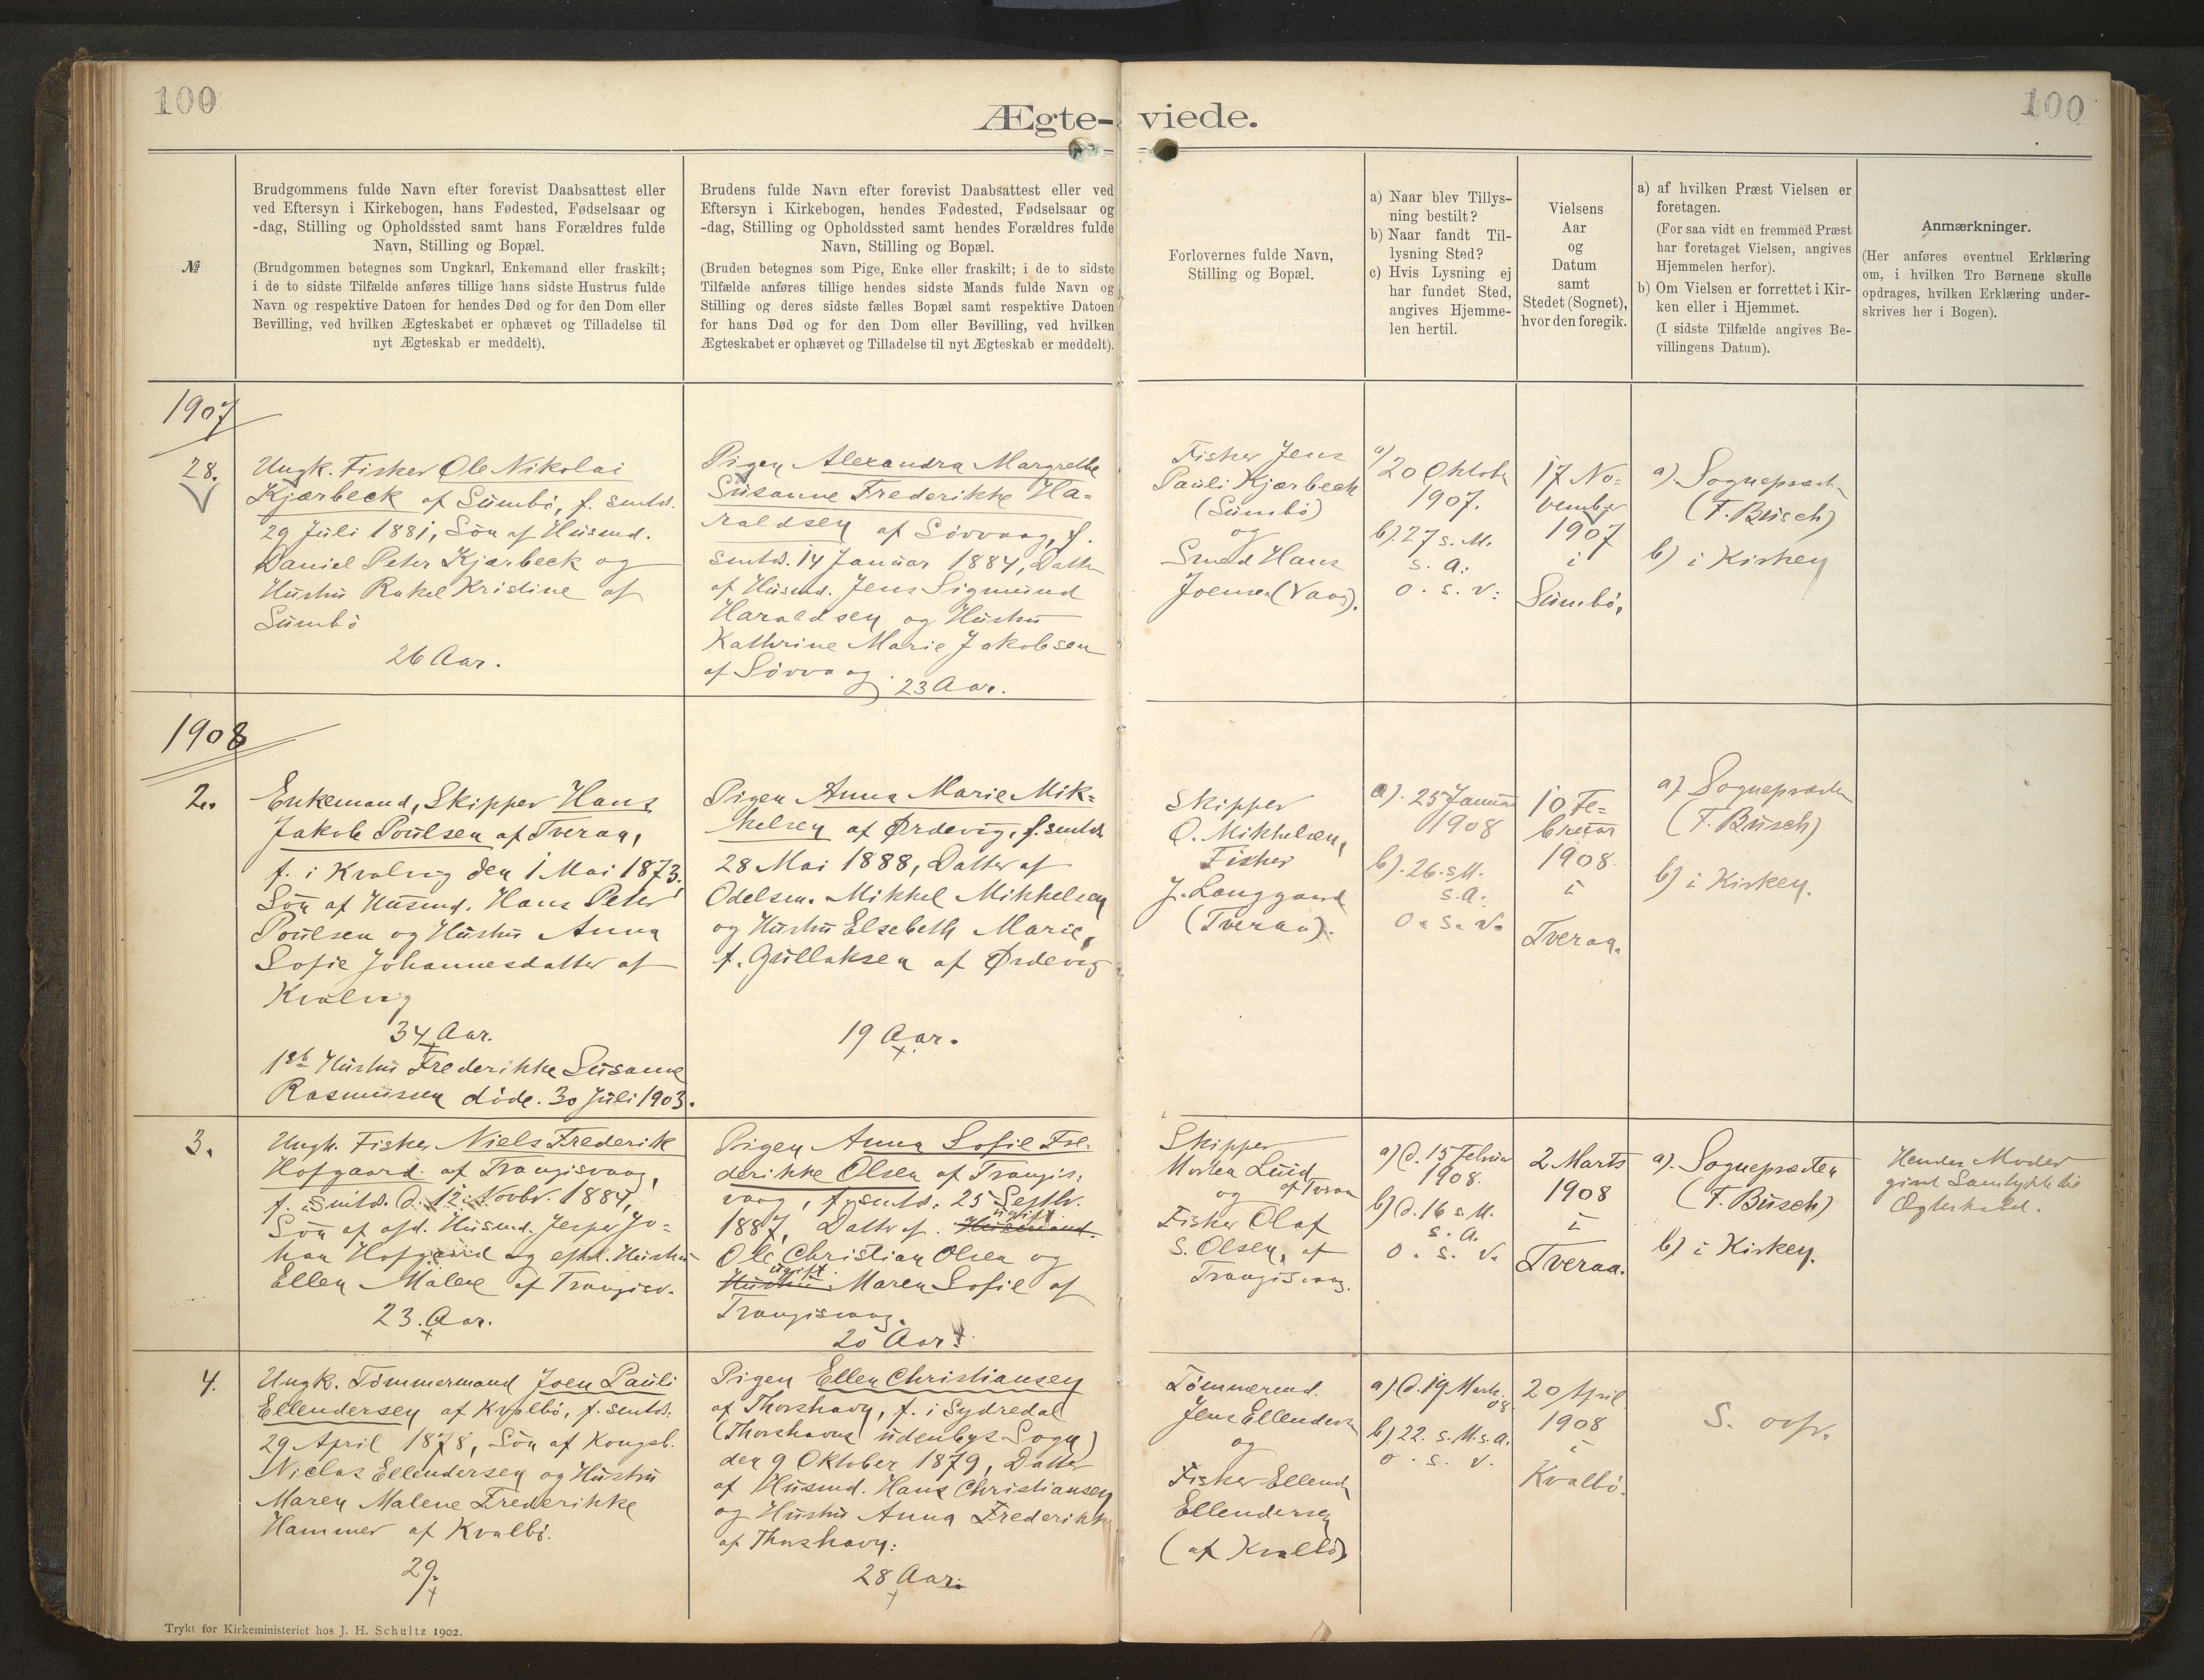 100
100
Ægte-viede.
№
Brudgommens fulde Navn efter forevist Daabsattest eller
ved Eftersyn i Kirkebogen, hans Fødested, Fødselsaar og
-dag, Stilling og Opholdssted samt hans Forældres fulde
Navn, Stilling og Bopæl.
(Brudgommen betegnes som Ungkarl, Enkemand eller fraskilt;
i de to sidste Tilfælde anføres tillige hans sidste Hustrus fulde
Navn og respektive Datoen for hendes Død og for den Dom eller
Bevilling, ved hvilken Ægteskabet er ophævet og Tilladelse til
nyt Ægteskab er meddelt).
Brudens fulde Navn efter forevist Daabsattest eller ved
Eftersyn i Kirkebogen, hendes Fødested, Fødselsaar og
-dag, Stilling og Opholdssted samt hendes Forældres fulde
Navn, Stilling og Bopæl.
(Bruden betegnes som Pige, Enke eller fraskilt; i de to sidste
Tilfælde anføres tillige hendes sidste Mands fulde Navn og
Stilling og deres sidste fælles Bopæl samt respektive Datoen
for hans Død og for den Dom eller Bevilling, ved hvilken
Ægteskabet er ophævet og Tilladelse til nyt Ægteskab er meddelt).
Forlovernes fulde Navn,
Stilling og Bopæl.
a) Naar blev Tillys-
ning bestilt?
b) Naar fandt Til-
lysning Sted?
c) Hvis Lysning ej
har fundet Sted,
angives Hjemme-
len hertil.
Vielsens
Aar
og
Datum
samt
Stedet (Sognet),
hvor den foregik.
a) af hvilken Præst Vielsen er
foretagen.
(For saa vidt en fremmed Præst
har foretaget Vielsen, angives
Hjemmelen herfor).
b) Om Vielsen er forrettet i Kir-
ken eller i Hjemmet.
(I sidste Tilfælde angives Be-
villingens Datum).
Anmærkninger.
(Her anføres eventuel Erklæring
om, i hvilken Tro Børnene skulle
opdrages, hvilken Erklæring under-
skrives her i Bogen).
1907
28.
Ungk. Fisker Ole Nikolai
Kjærbeck af Sumbö, f. smtds.
29 Juli 1881, Søn af Husmd.
Daniel Peter Kjærbeck og
Hustru Rakel Kristine af
Sumbö
26 Aar.
Pigen Alexandra Margrethe
Susanne Frederikke Ha-
raldsen af Sövvaag, f.
smtds. 14 Januar 1884, Datter
af Husmd. Jens Sigmund
Haraldsen og Hustru
Kathrine Marie Jakobsen
af Sövvaag. 23 Aar.
Fisker Jens
Pauli Kjærbeck
(Sumbö)
og
Smed Hans
Joensen (Vaag).
a) 20 Oktober
1907.
b) 27 s. M.
s. A.
o. s. v.
17 No-
vember
1907
i
Sumbö.
a) Sognepræsten
(F. Busch)
b) i Kirken
1908
2.
Enkemand, Skipper Hans
Jakob Poulsen af Tveraa,
f. i Kvalvig den 1 Mai 1873,
Søn af Husmd. Hans Peter
Poulsen og Hustru Anna
Sofie Johannesdatter af
Kvalvig
34 Aar.
1ste Hustru Frederikke Susanne
Rasmussen döde. 30 Juli 1903.
Pigen Anna Marie Mik-
kelsen af Ördevig, f. smtds
28 Mai 1888, Datter af
Odelsm. Mikkel Mikkelsen
og Hustru Elsebeth Marie,
f. Gullaksen af Ördevig
19 Aar.
Skipper
O. Mikkelsen,
Fisker
J. Langgaard
(Tveraa).
a). 25 Januar
1908
b). 26. s. M.
s. A.
o. s. v.
10 Fe-
bruar
1908.
i
Tveraa.
a) Sognepræsten
(F. Busch)
b) i Kirken.
3.
Ungk. Fisker Niels Frederik
Hofgaard af Trangisvaag,
f. smtds. d. 12. Novbr. 1884,
Søn af afd. Husmd. Jesper Jo-
han Hofgaard og eftl. Hustru
Ellen Malene af Trangisv.
23. Aar.
Pigen Anna Sofie Fre-
derikke Olsen af Trangis-
vaag, f. smtds. 25 Septbr.
1887, Datter af ugift Husmand
Ole Christian Olsen og
ugift Hustru Maren Sofie af
Trangisvaag.
20 Aar.
Skipper
Morten Luid
og af Tveraa
Fisker Olaf
S. Olsen, af
Trangisvaag.
a) d. 15 Februar
1908.
b) d. 16 s. M.
s. A.
o. s. v.
2 Marts
1908
i
Tveraa.
a). Sognepræsten
(F. Busch)
b) i Kirken.
Hendes Moder
givet Samtykke til
Ægteskabet.
4.
Ungk. Tömmermand Joen Pauli
Ellendersen af Kvalbö, f. smtds.
29 April 1878, Søn af Kongsb.
Niclas Ellendersen og Hustru
Maren Malene Frederikke
Hammer af Kvalbö.
29.
Pigen Ellen Christiansen
af Thorshavn, f. i Sydredal
(Thorshavns udenbys Sogn)
den 9 Oktober 1879, Datter
af Husmd. Hans Christiansen
og Hustru Anna Frederikke
af Thorshavn.
28 Aar.
Tömmermd.
Jens Ellendersen
og
Fisker Ellend
Ellendersen
(af Kvalbö)
a) d. 19 Marts
08
b). 22. s. M. s. A.
o. s. v.
20 April
1908
i
Kvalbö.
S. ovfr.
Trykt for Kirkeministeriet hos J. H. Schultz 1902.